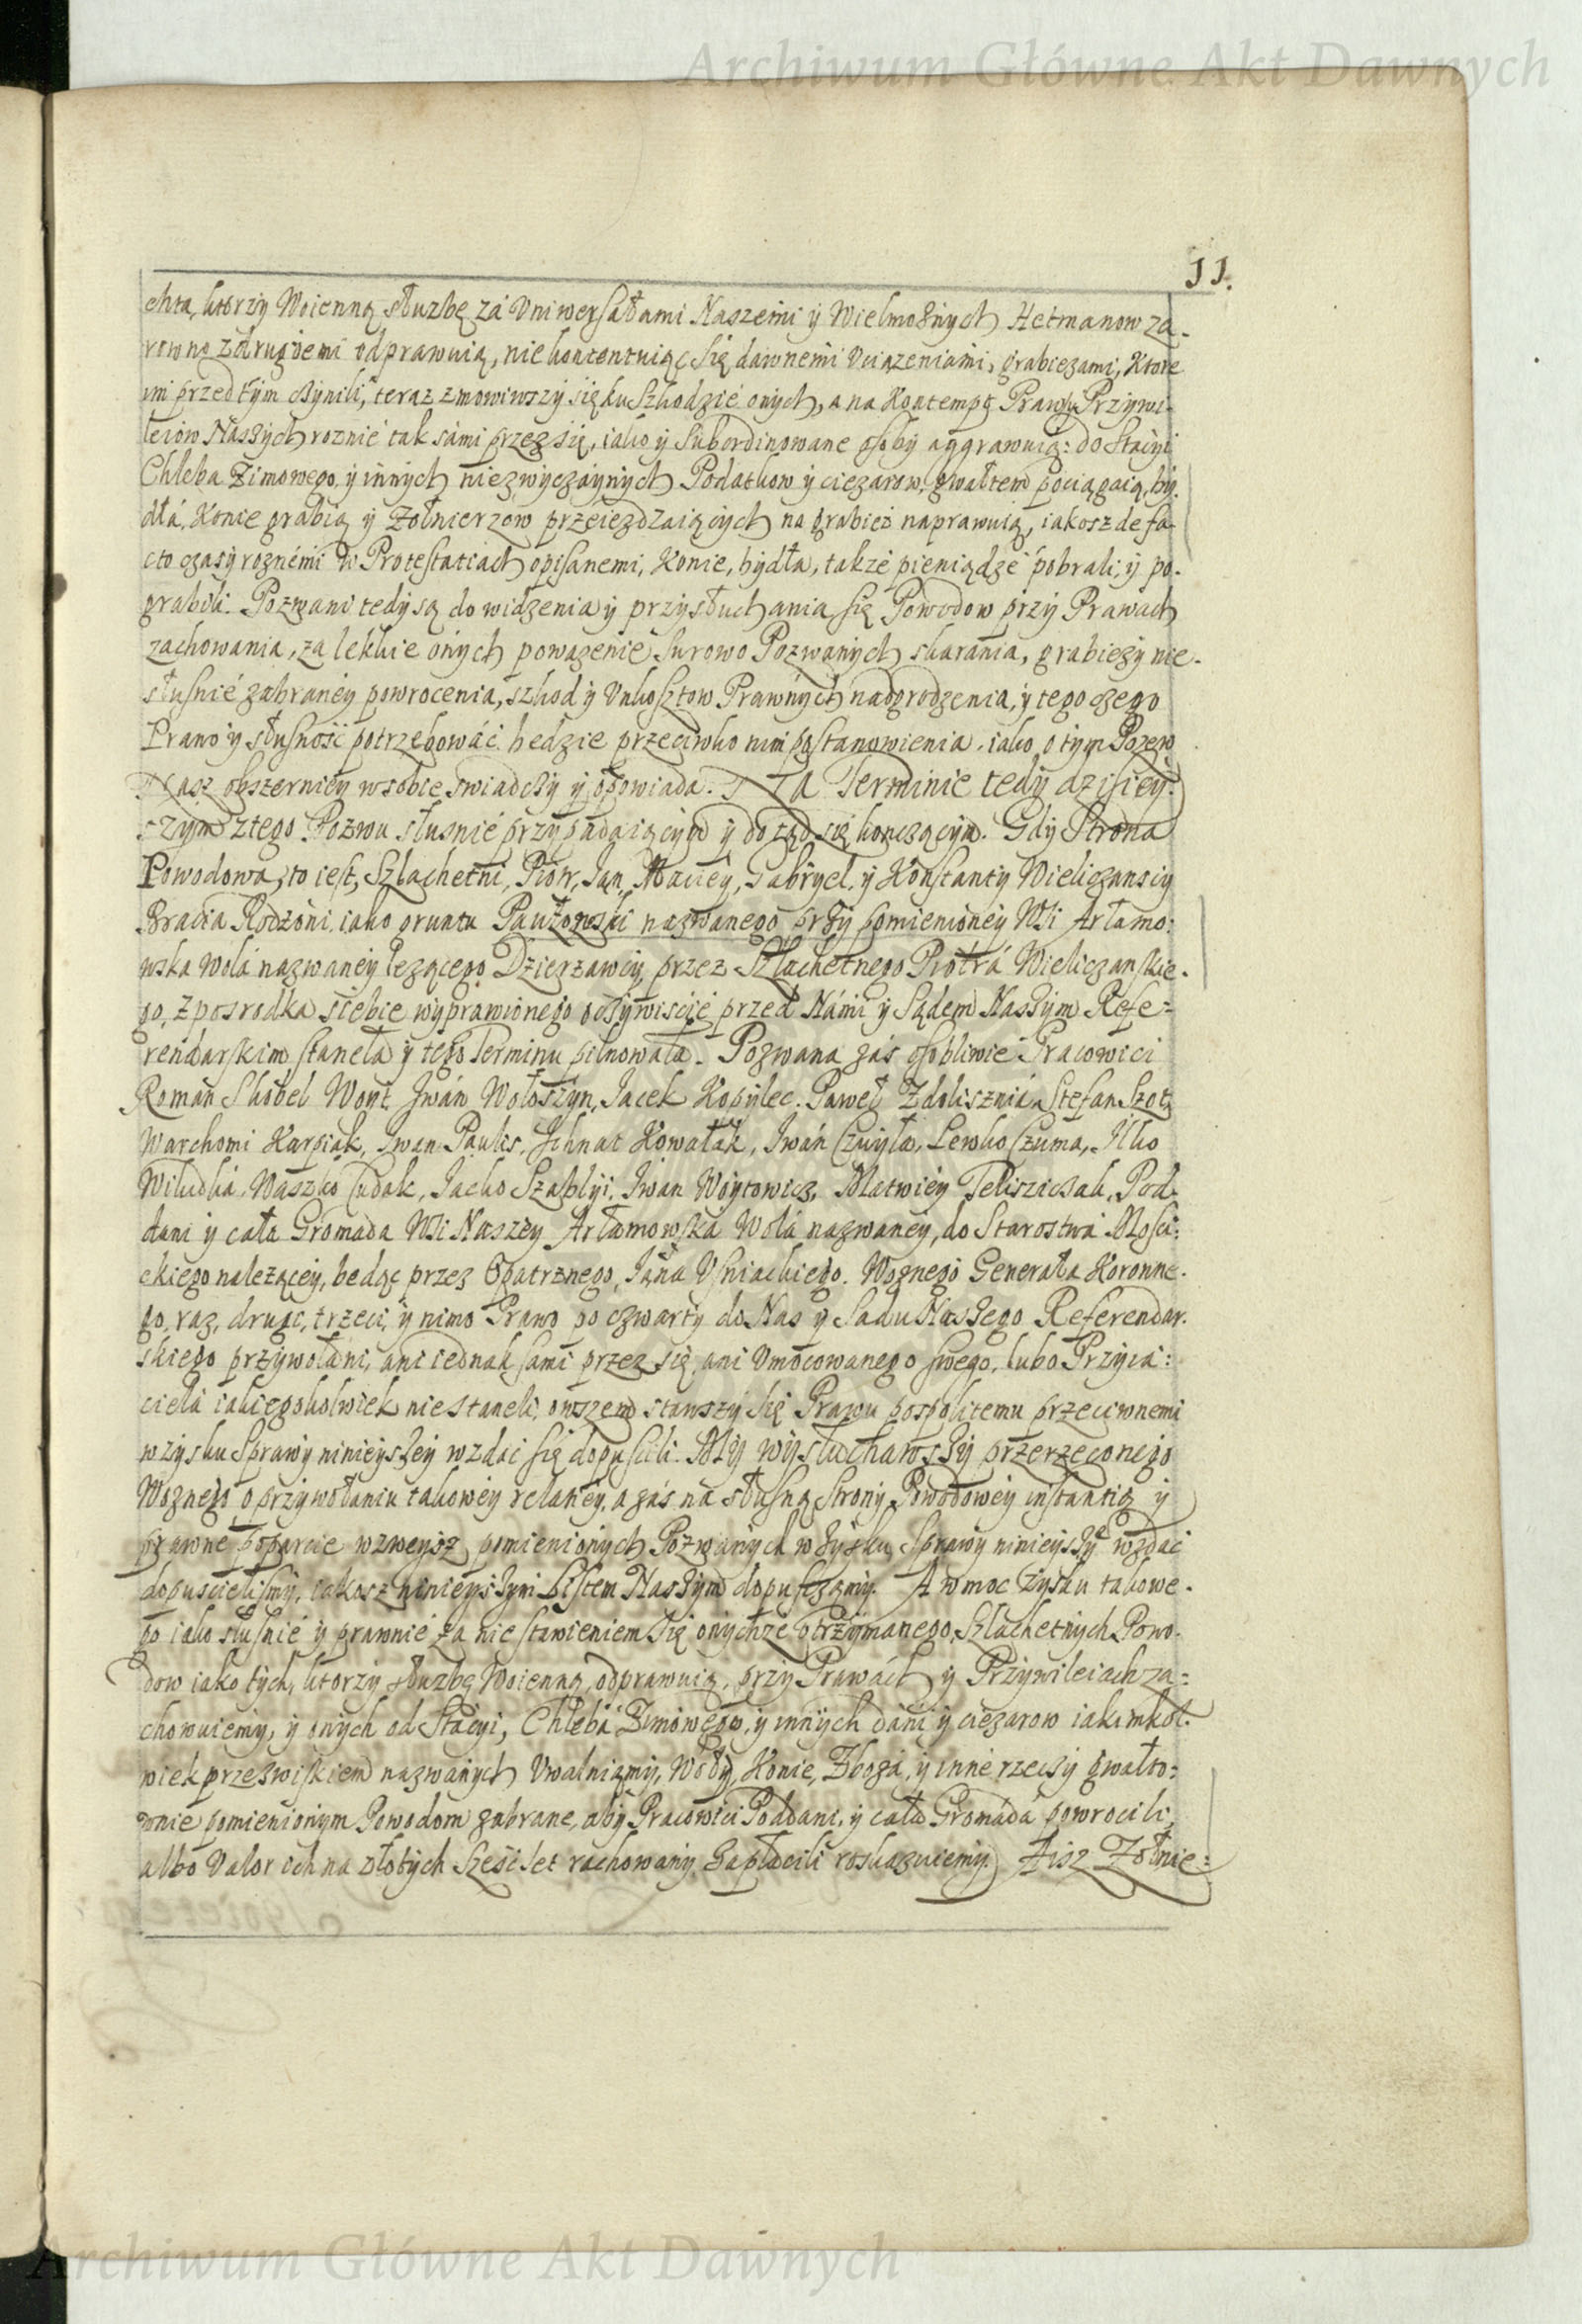 Archiwum Główne Akt Dawnych
11.
chta, ktorzy Woienną słuzbę zá Vniwersałami Naszemi ÿ Wielmoznych Hetmanow za-
rowno zdrugiemi odprawuią, niekontentuiąc się dawnemi Vciązeniámi, grabiezami, Ktore
im przed tym czynili, teraz zmowiwszy się ku Szkodzie onych, a na Kontempt Prawu Przywi-
leiow Naszych roznie tak sámi przez się, iako ÿ Subordinowane osoby aggrawuią: do Stacyi
Chleba Zimowego, ÿ innych niezwyczaynych Podatkow ÿ ciezarow, gwałtem pociągaią, by-
dłá, Konie grabią ÿ Zołnierzow przeiezdzaiących na grabiez naprawuią, iakosz de fa-
cto czasy roznémi w Protestatiach opisanemi, Konie, bydła, takze pieniądze pobrali, ÿ po-
grabili. Pozwani tedy są do widzenia ÿ przysłuchania się Powodow przy Prawach
zachowania, za lekkie onych powazenie surowo Pozwanych skarania, grabiezy nie-
słusnie zabraney powrocenia, szkod ÿ Vnkosztow Prawnych nadgrodzenia, ÿ tego czego
Prawo ÿ słusność potrzebowáć będzie przeciwko nim postanowienia, iako o tym Pozew
Nasz obszerniey w sobie swiadczy ÿ opowiada. Na Terminie tedy dzisiey-
szym z tego Pozwu słusnie przypadaiącym ÿ do tąd się konczącym. Gdy Strona
Powodowa, to iest, Szlachetni, Piotr, Jan, Maciey, Gabryel, ÿ Konstanty Wieliczanscy
Bracia Rodzoni, iako gruntu Pautowski nazwanego przy pomienioney Wsi Artamo:
wska Wolá nazwaney lezącego Dzierzawcy, przez Szlachetnego Piotrá Wieliczanskie-
go, z posrodka siebie wyprawionego oczywiscie przed Námi ÿ Sądem Naszym Refe-
rendarskim stanęła ÿ tego Terminu pilnowała. Pozwana zás osobliwie Pracowici
Roman Skobel Woyt, Iwán Wołoszyn, Jacek Kopylec, Paweł Stefan Szot,
Warchomi Karpiak, Iwan Pauks, Ichnat Kowalák, Iwán Lewko Czuma, Ilko
Waszko Cudak, Jacko Szablyi, Iwan Woytowicz, Matwiey Pod-
dani ÿ cała Gromada Wsi Naszey Artamowska Wolá nazwaney, do Starostwá Mości:
ckiego nalezącey, będąc przez Opatrznego Jana Vsniackiego, Woznego Generała Koronne-
go, raz, drugi, trzeci, ÿ nimo Prawo po czwarty do Nas ÿ Sadu Naszego Referendar-
skiego przywołani, ani iednak sami przez się, ani Vmocowanego swego, lubo Przyia:
cielá iakiegokolwiek nie staneli, owszem stawszy się Prawu pospolitemu przeciwnemi
w zysku Sprawy ninieyszey wzdać się dopuscili. My wysłuchawszy przerzeczonego
Woznego o przywołaniu takowey relatiey, a zás na słusną Strony Powodowey instantią ÿ
prawne poparcie wzweysz pomienionych Pozwanych w zysku Sprawy ninieyszey wzdać
dopuscielismy, iakosz ninieyszym Listem Naszym dopuszczamy. A w moc zysku takowe-
go iako słusnie ÿ prawnie za nie stawieniem się onychze otrzymanego, Szlachetnych Powo-
dow iako tych, ktorzy słuzbę Woienną odprawuią, przy Prawách ÿ Przywileiach za-
chowuiemy, ÿ onych od Stacyi, Chlebá Zimowego, ÿ innych dani ÿ ciezarow iakimkol-
wiek przezwiskiem nazwanych Vwalniamy, Woły, Konie, Zbozá, ÿ inne rzeczy gwałto-
wnie pomienionym Powodom zabrane, aby Pracowici Poddani, ÿ cała Gromada powrocili,
albo Valor ich na złotych Sześćset rachowany zapłacili roskazuiemy. Aisz Zołnie:
Archiwum Główne Akt Dawnych